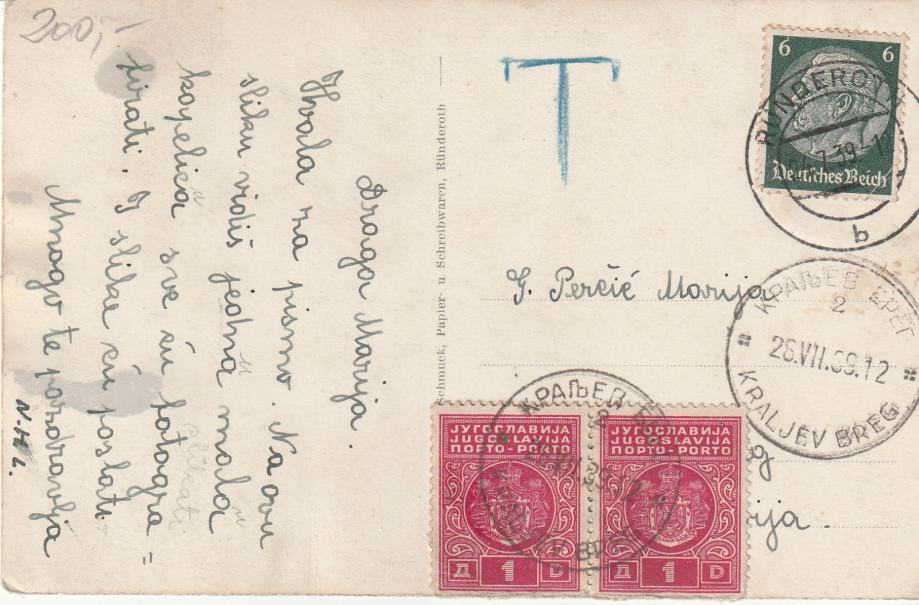 200,-
Draga Marija.
Hvala na pismo. Na ovu
sliku vidiš jedna mala
kapelica sve ću fotogra=
firati. I slike ću poslati
Mnogo te pozdravlja
N.H.
Schmuck, Papier- u Schreibwaren, Ründeroth
T
6 6
Deutsches Reich
RÜNDEROTH
7.39.-1
b
G. Perčić Marija
КРАЉЕВ БРЕГ
2
26.VII.39.12
KRALJEV BREG
ЈУГОСЛАВИЈА
JUGOSLAVIJA
ПОРТО-PORTO
Д 1 D
ЈУГОСЛАВИЈА
JUGOSLAVIJA
ПОРТО-PORTO
Д 1 D
КРАЉЕВ